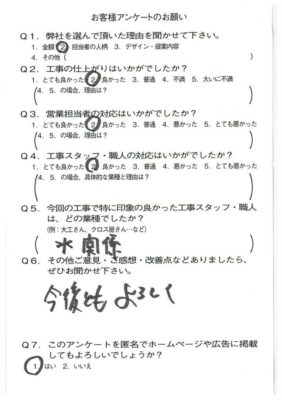 お客様アンケートのお願い
Q1. 弊社を選んで頂いた理由を聞かせて下さい。
1. 金額 2. 担当者の人柄 3. デザイン・提案内容
4. その他(
Q2. 工事の仕上がりはいかがでしたか?
1. とても良かった 2. 良かった 3. 普通 4. 不満 5. 大いに不満
(4. 5. の場合、理由は? )
Q3. 営業担当者の対応はいかがでしたか?
1. とても良かった 2. 良かった 3. 普通 4. 悪かった 5. とても悪かった
(4. 5. の場合、理由は? )
Q4. 工事スタッフ・職人の対応はいかがでしたか?
1. とても良かった 2. 良かった 3. 普通 4. 悪かった 5. とても悪かった
(4. 5. の場合、具体的な業種と理由は? )
Q5. 今回の工事で特に印象の良かった工事スタッフ・職人
は、どの業種でしたか?
(例:大工さん、クロス屋さん…など)
( 水関係 )
Q6. その他ご意見・ご感想・改善点などありましたら、
ぜひお聞かせ下さい。
今後ともよろしく
Q7. このアンケートを匿名でホームページや広告に掲載
してもよろしいでしょうか?
1. はい 2. いいえ